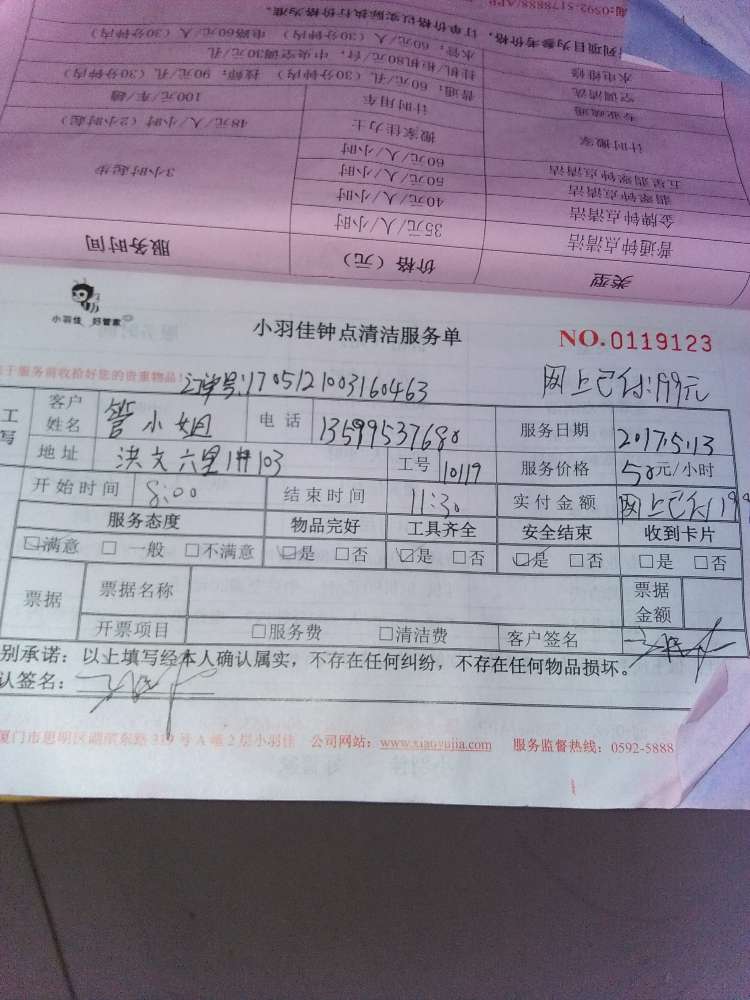 电:0592-5178888/APP
列项目为参考价格,订单价格以实际执行价格为准。
水电维修 水管:60元/人(30分钟内) 电路60元/人(30分钟内)
空调清洗 挂机/柜机80元/台,中央空调30元/孔
专业疏通 普通:60元/孔(30分钟内) 技师:90元/孔(30分钟内)
计时搬家 计时用车 100元/车/趟
搬家佳力士 48元/人/小时(2小时起)
五星翡翠钟点清洁 60元/人/小时
翡翠钟点清洁 50元/人/小时 3小时起步
金牌钟点清洁 40元/人/小时
普通钟点清洁 35元/人/小时
类型 价格(元) 服务时间
小羽佳 好管家
小羽佳钟点清洁服务单
NO.0119123
于服务前收拾好您的贵重物品!
订单号:1705121003160463
网上已付:199元
工 写
客户姓名 管小姐 电话 13599537680 服务日期 2017.5.13
地址 洪文六里1#103 工号 10119 服务价格 50元/小时
开始时间 8:00 结束时间 11:30 实付金额 网上已付199
服务态度 物品完好 工具齐全 安全结束 收到卡片
☑满意 □ 一般 □不满意 ☑是 □否 ☑是 □否 ☑是 □否 □是 □否
票据 票据名称 票据金额
开票项目 □服务费 □清洁费 客户签名
别承诺:以上填写经本人确认属实,不存在任何纠纷,不存在任何物品损坏。
认签名:
厦门市思明区湖滨东路319号A幢2层小羽佳 公司网站:www.xiaoyujia.com 服务监督热线:0592-5888